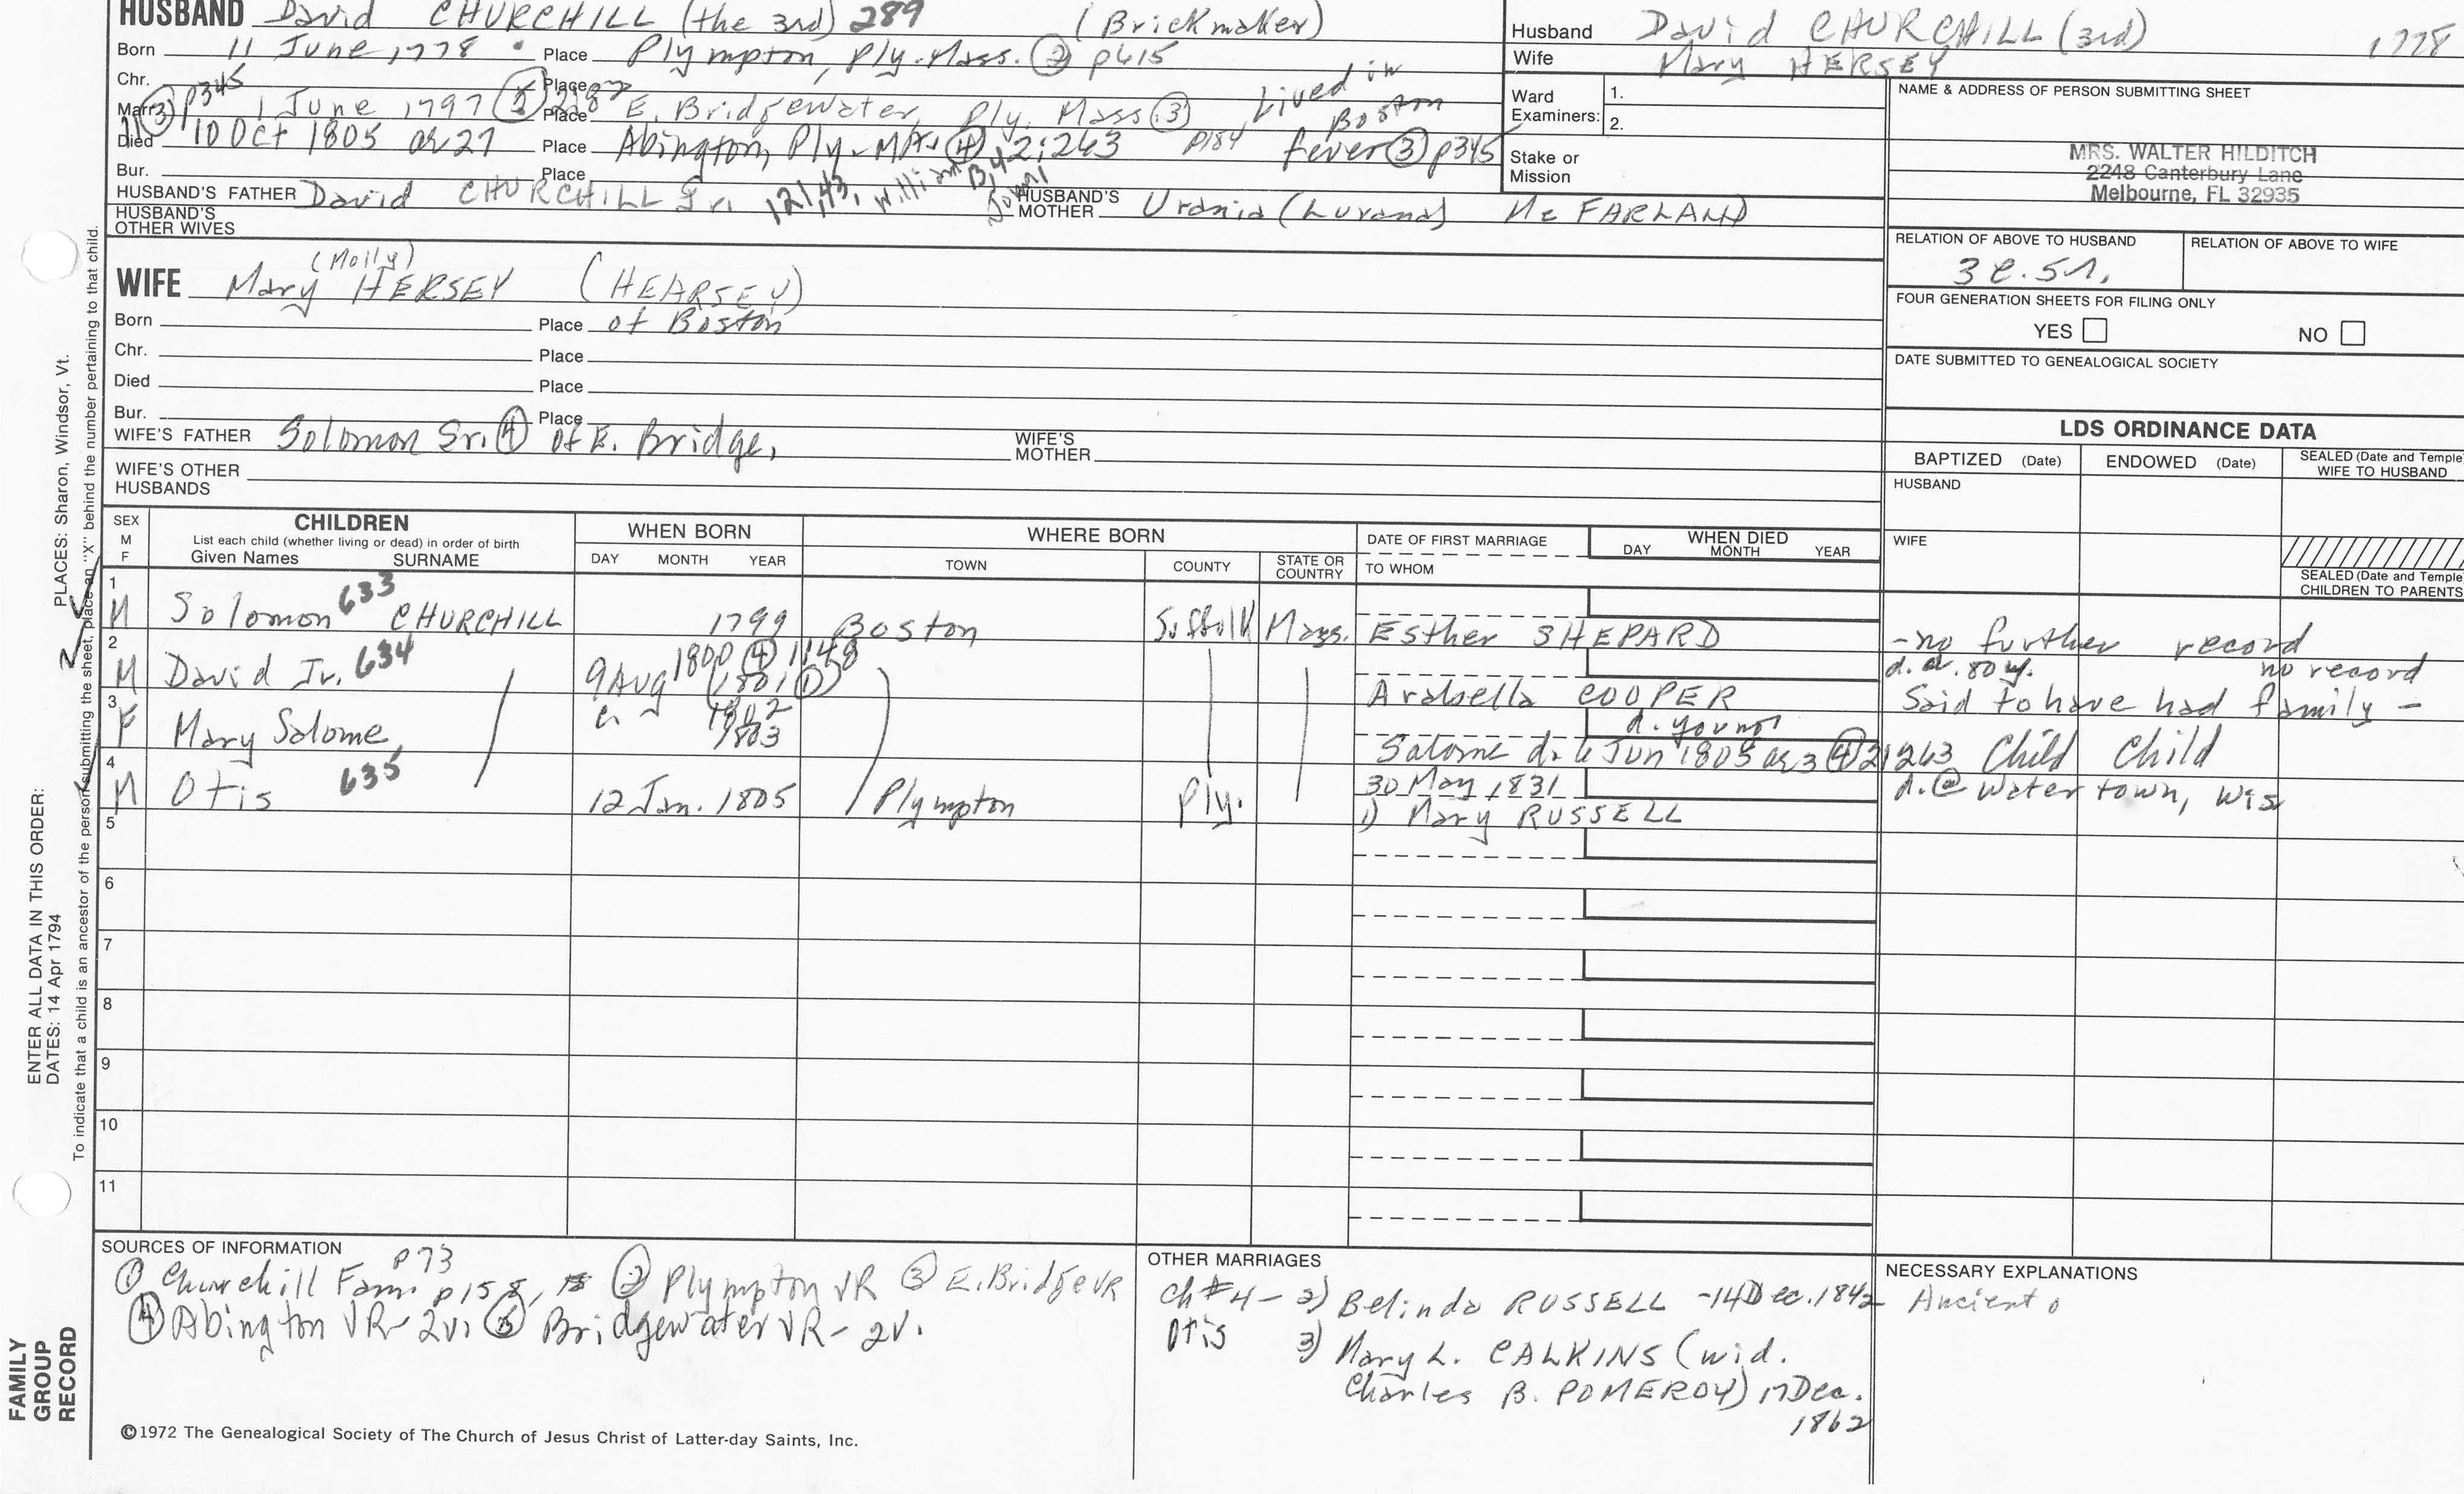 HUSBAND David CHURCHILL (the 3rd) 289 (Brickmaker)
Born 11 June 1778 Place Plympton, Ply. Mass. (2) p615
Chr. Place
Marr. (3) p345 1 June 1797 Place E. Bridgewater, Ply. Mass (3) Lived in Boston
Died 10 Oct 1805 ae 27 Place Abington, Ply. Mass (4) 2:263 p184 fever (3) p345
Bur. Place
HUSBAND'S FATHER David CHURCHILL Jr. 121,43, William B,4 John HUSBAND'S MOTHER Urania (Lurana) Mc FARLAND
HUSBAND'S OTHER WIVES
Husband David CHURCHILL (3rd) 1778
Wife Mary HERSEY
Ward Examiners: 1.
2.
Stake or Mission
NAME & ADDRESS OF PERSON SUBMITTING SHEET
MRS. WALTER HILDITCH
2248 Canterbury Lane
Melbourne, FL 32935
RELATION OF ABOVE TO HUSBAND
RELATION OF ABOVE TO WIFE
FOUR GENERATION SHEETS FOR FILING ONLY
YES NO
DATE SUBMITTED TO GENEALOGICAL SOCIETY
(Molly)
WIFE Mary HERSEY (HEARSEY)
Born Place of Boston
Chr. Place
Died Place
Bur. Place
WIFE'S FATHER Solomon Sr. (4) of E. Bridge, WIFE'S MOTHER
WIFE'S OTHER HUSBANDS
LDS ORDINANCE DATA
BAPTIZED (Date) ENDOWED (Date) SEALED (Date and Temple) WIFE TO HUSBAND
HUSBAND
WIFE
SEALED (Date and Temple) CHILDREN TO PARENTS
SEX M F
CHILDREN
List each child (whether living or dead) in order of birth
Given Names SURNAME
WHEN BORN
DAY MONTH YEAR
WHERE BORN
TOWN COUNTY STATE OR COUNTRY
DATE OF FIRST MARRIAGE
TO WHOM
WHEN DIED
DAY MONTH YEAR
1 M Solomon 633 CHURCHILL 1799 Boston Suffolk Mass. Esther SHEPARD - no further record
2 M David Jr. 634 9 Aug 1800 (4) 1:48 (1801 (1)) Arabella COOPER d. ae. 80 y. no record
Said to have had family -
3 F Mary Salome, 1802 1803 d. young
Salome d. 6 Jun 1805 ae 3 (4) 2:263 Child Child
4 M Otis 635 12 Jan. 1805 Plympton Ply. 30 May 1831
1) Mary RUSSELL d. @ Watertown, Wis
5
6
7
8
9
10
11
SOURCES OF INFORMATION
p73
(1) Churchill Fam. p158, (2) Plympton VR (3) E. Bridge VR
(4) Abington VR - 2v. (5) Bridgewater VR - 2v.
OTHER MARRIAGES
ch #4 - 2) Belinda RUSSELL - 14 Dec. 1842
Otis 3) Mary L. CALKINS (wid.
Charles B. POMEROY) 17 Dec.
1862
NECESSARY EXPLANATIONS
Ancient
©1972 The Genealogical Society of The Church of Jesus Christ of Latter-day Saints, Inc.
FAMILY
GROUP
RECORD
ENTER ALL DATA IN THIS ORDER:
DATES: 14 Apr 1794
PLACES: Sharon, Windsor, Vt.
To indicate that a child is an ancestor of the person submitting the sheet, place an "X" behind the number pertaining to that child.